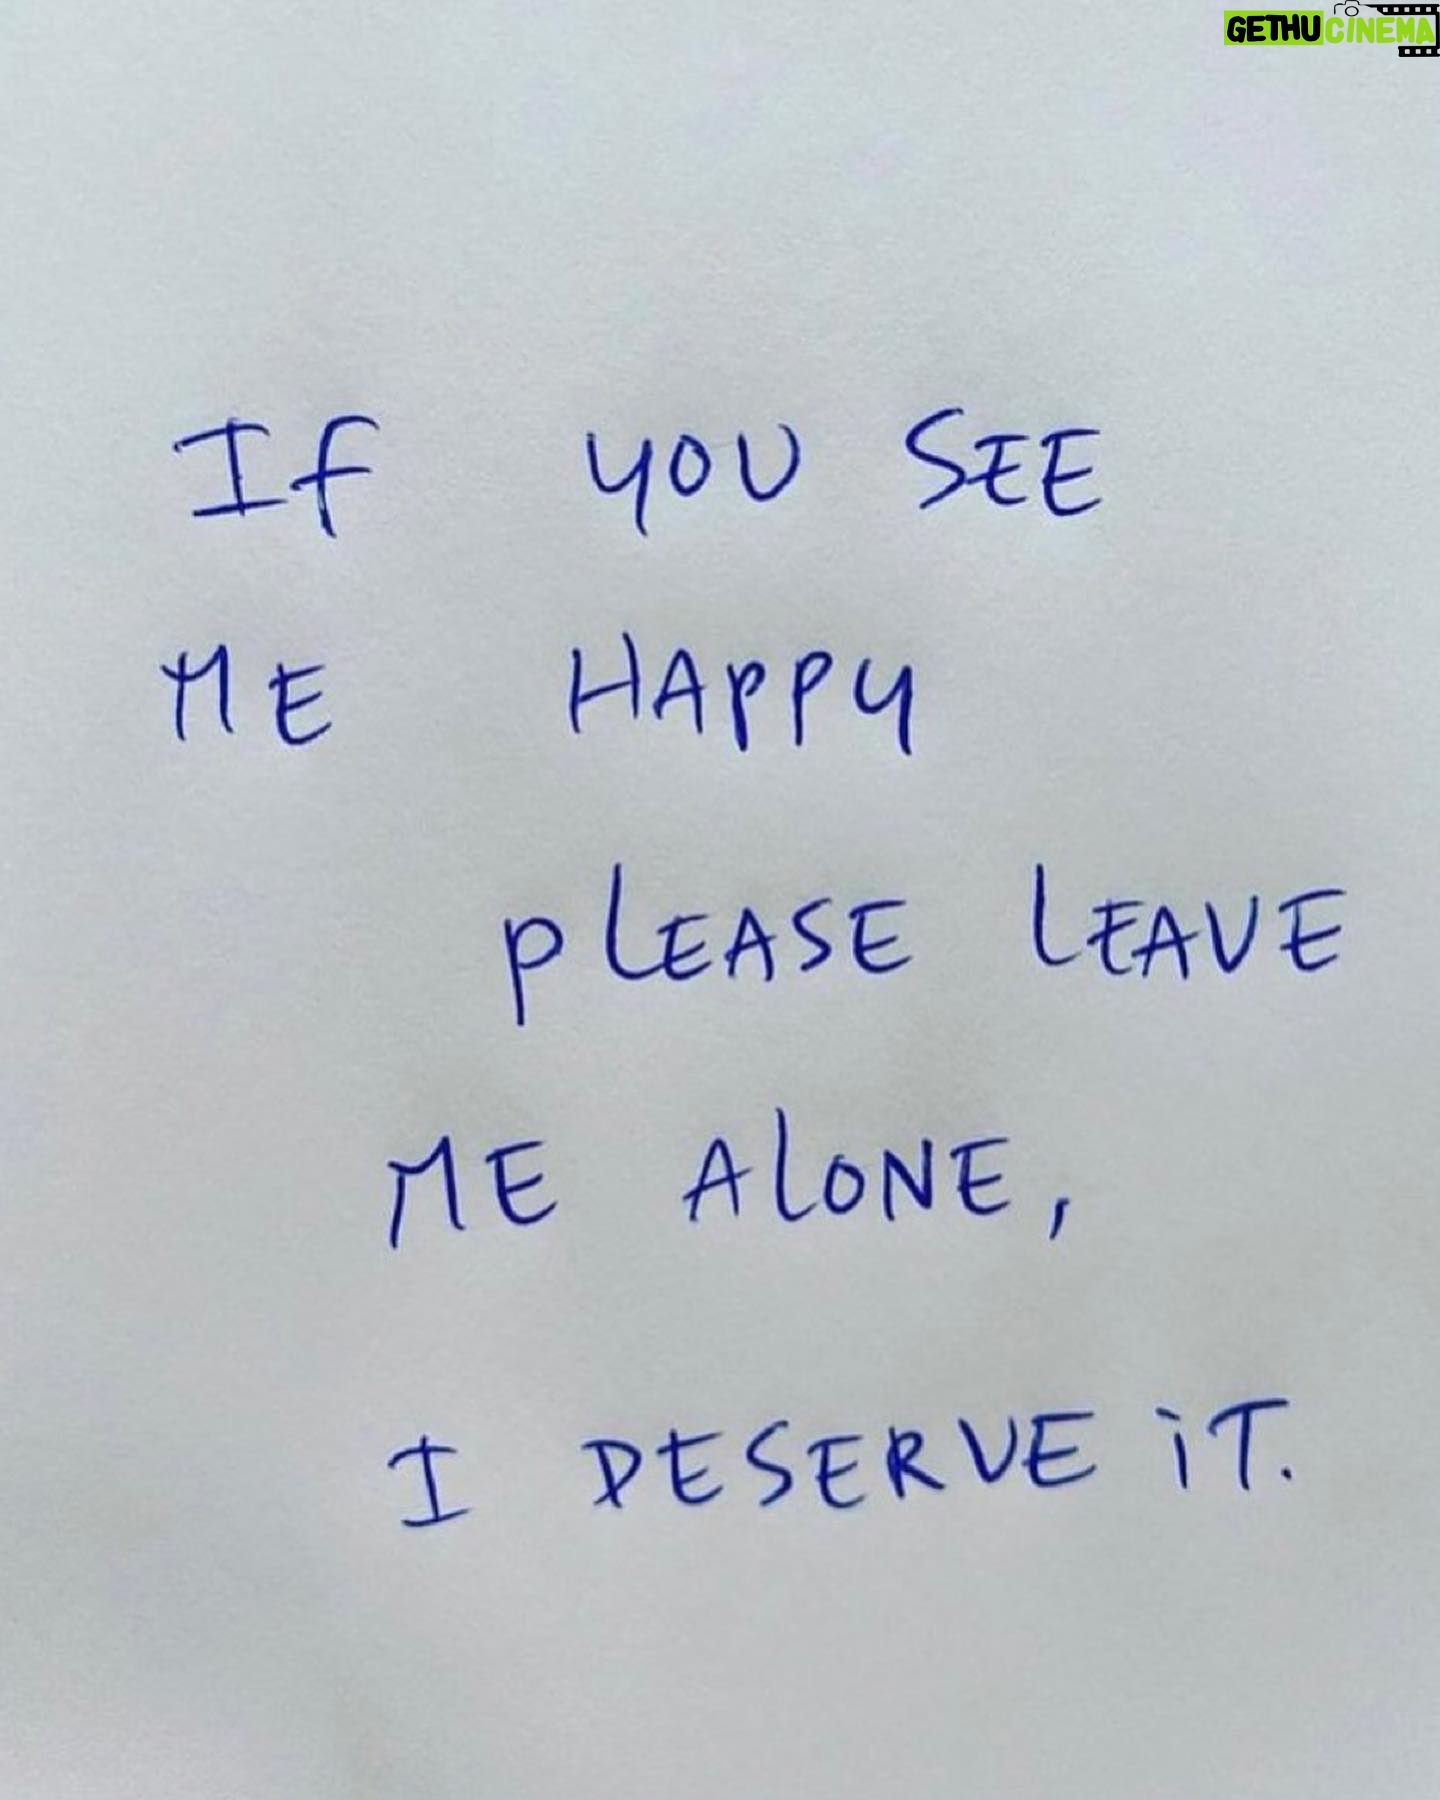 GETHUCINEMA
If YOU SEE
ME HAPPY
pLEASE LEAVE
ME AlONE,
I DESERVE iT.